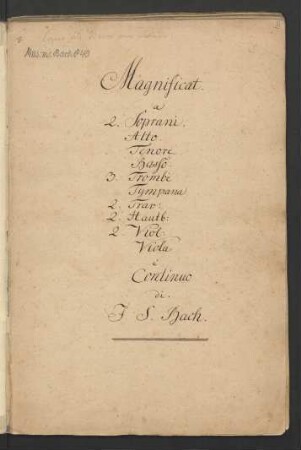 Mus. ms. Bach P 40
Magnificat.
a
2. Soprani.
Alto
Tenore
Basso.
3 Trombe
Tympana
2. Trav:
2. Hautb:
2. Viol:
Viola
e
Continuo
di.
J. S. Bach.